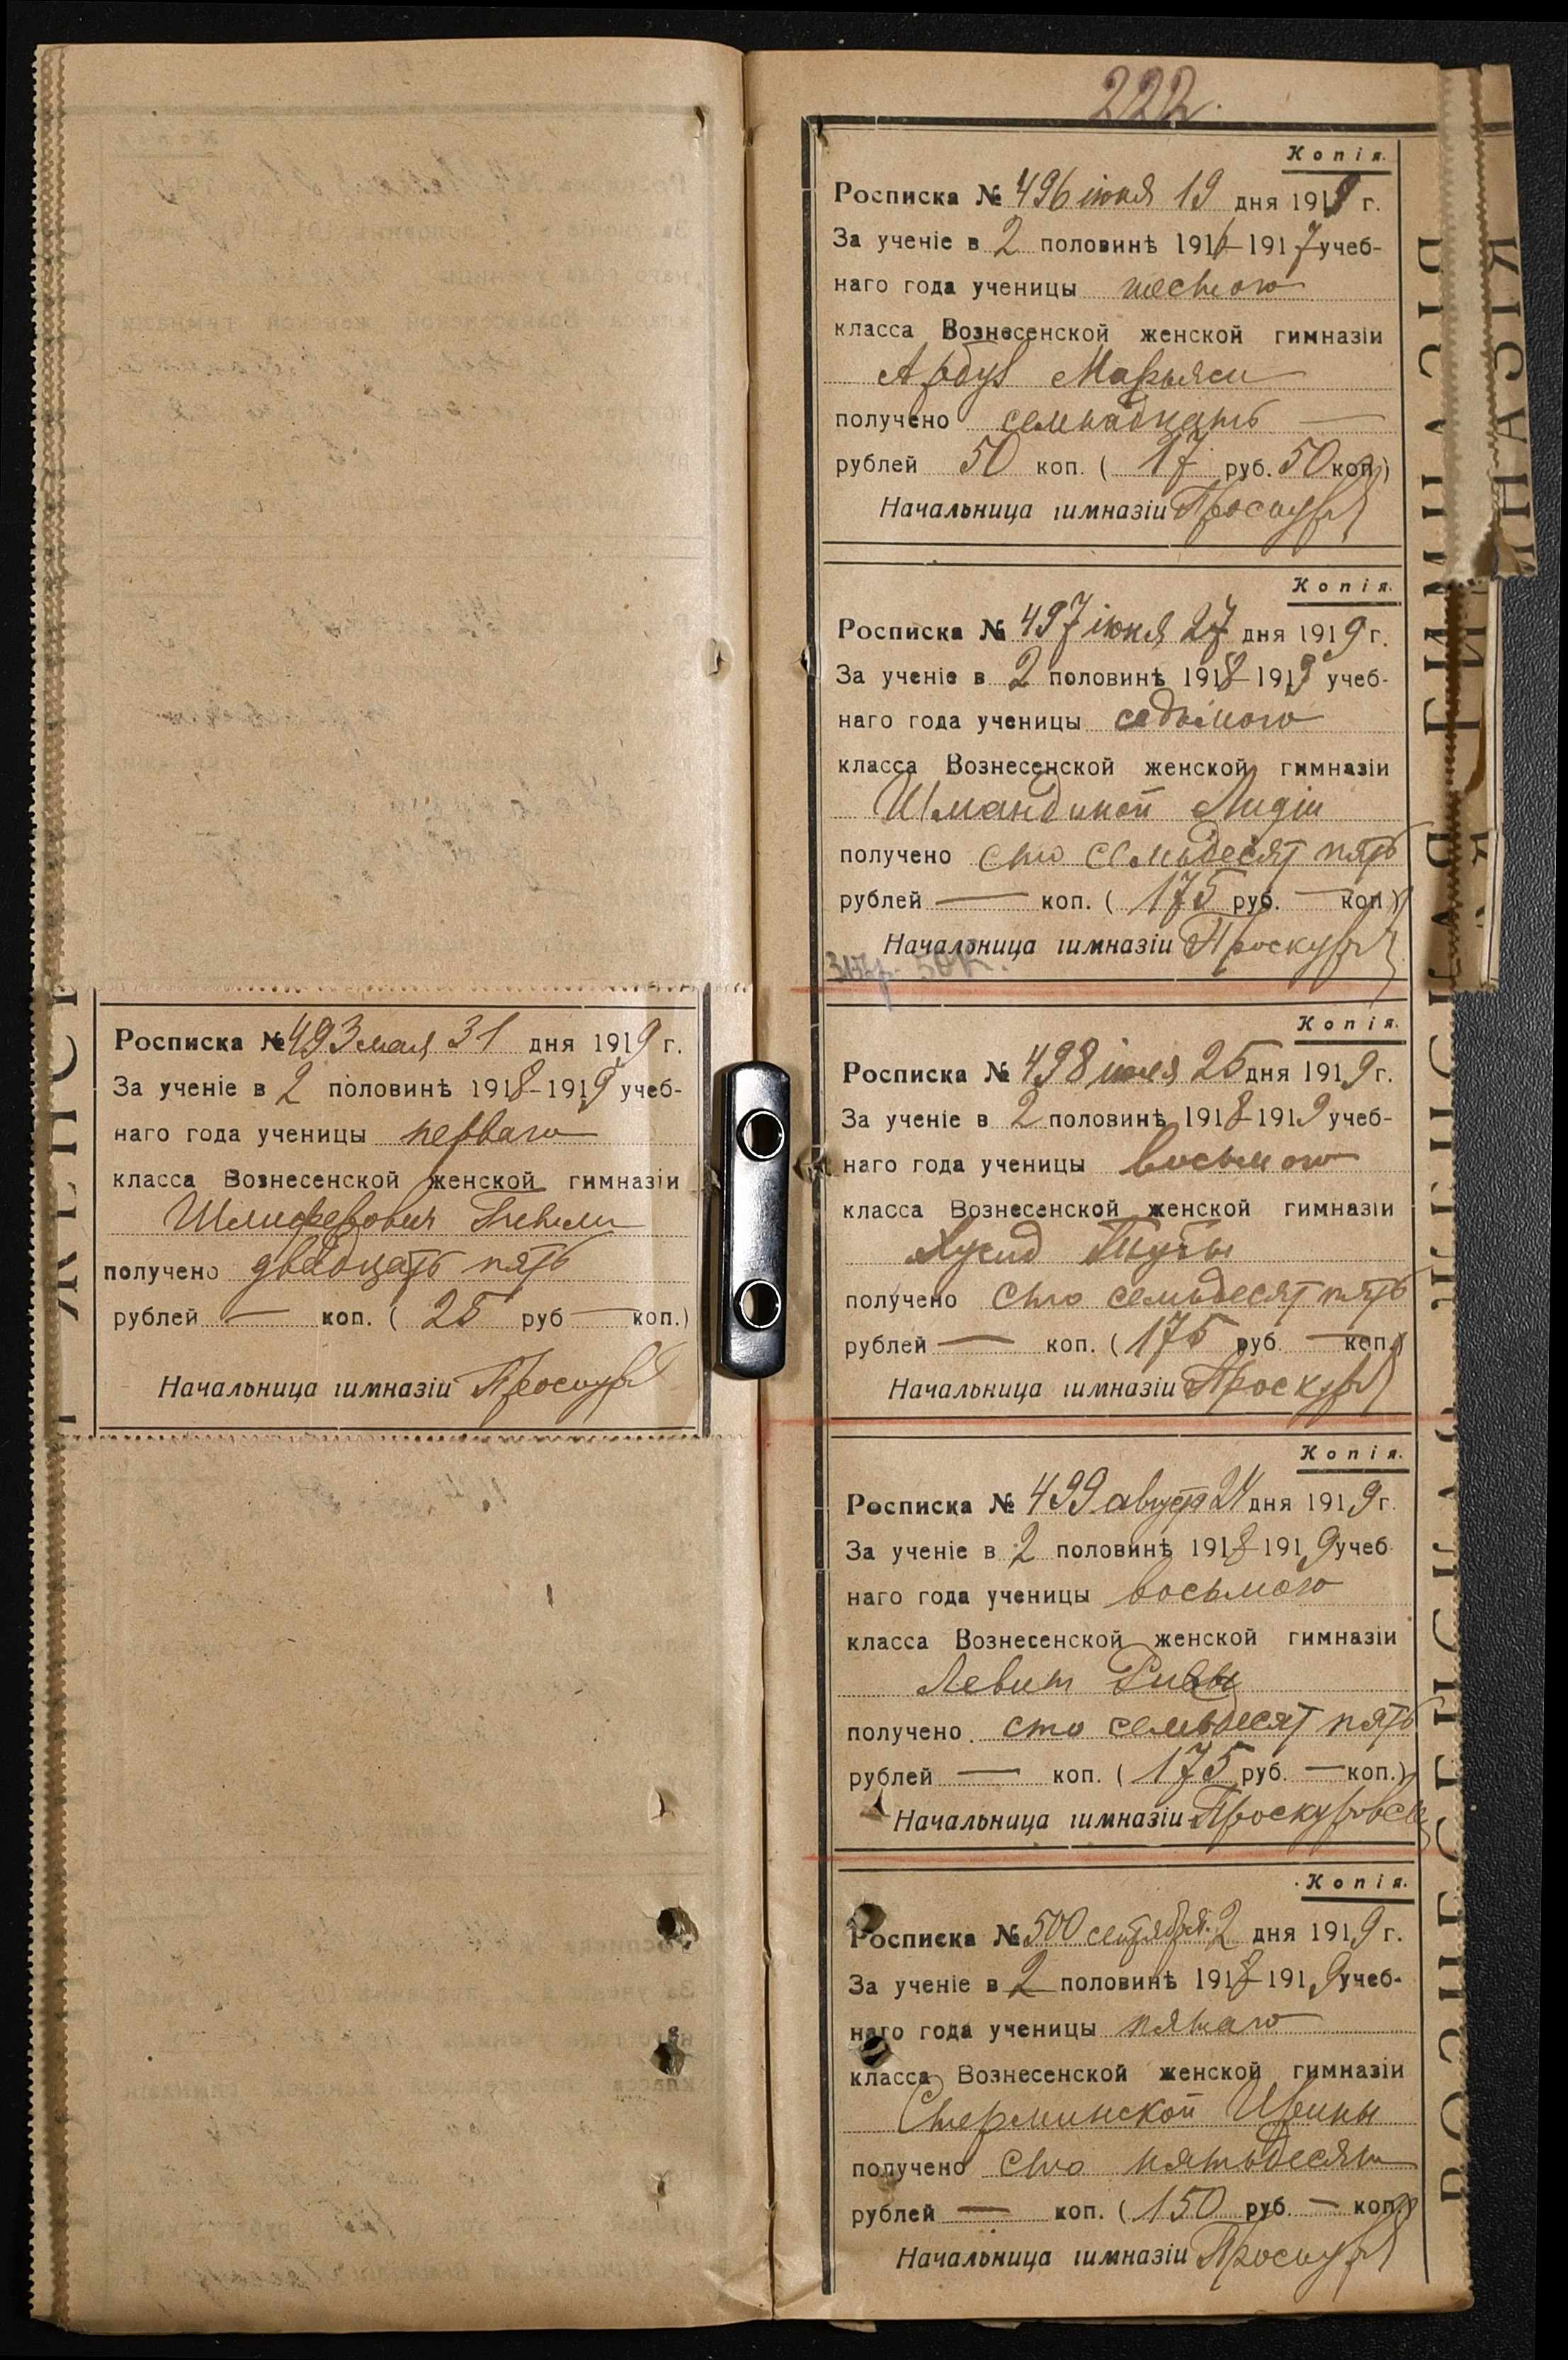 Росписка № 493 мая 31 дня 1919 г.
За ученіе в 2 половинѣ 1918-1919 учеб-
наго года ученицы перваго
класса Вознесенской женской гимназіи
получено двадцать пять
рублей — коп. ( 25 руб — коп.)
Начальница гимназіи
222.
Копія.
Росписка № 496 іюня 19 дня 1919 г.
За ученіе в 2 половинѣ 1916-1917 учеб-
наго года ученицы шестого
класса Вознесенской женской гимназіи
Арбуз Марьяси
получено семнадцать —
рублей 50 коп. ( 17 руб. 50 коп.)
Начальница гимназіи
Копія.
Росписка № 497 іюня 27 дня 1919 г.
За ученіе в 2 половинѣ 1918-1919 учеб-
наго года ученицы седьмого
класса Вознесенской женской гимназіи
Шмандиной Лидіи
получено сто семьдесят пять
рублей — коп. ( 175 руб. — коп.)
Начальница гимназіи
Копія.
Росписка № 498 іюля 25 дня 1919 г.
За ученіе в 2 половинѣ 1918-1919 учеб-
наго года ученицы восьмого
класса Вознесенской женской гимназіи
Хусид
получено сто семьдесят пять
рублей — коп. ( 175 руб. — коп.)
Начальница гимназіи
Копія.
Росписка № 499 август 24 дня 1919 г.
За ученіе в 2 половинѣ 1918-1919 учеб-
наго года ученицы восьмого
класса Вознесенской женской гимназіи
Левит Ривы
получено сто семьдесят пять
рублей — коп. ( 175 руб. — коп.)
Начальница гимназіи
Копія.
Росписка № 500 сентября 2 дня 1919 г.
За ученіе в 2 половинѣ 1918-1919 учеб-
наго года ученицы пятаго
класса Вознесенской женской гимназіи
Стерминской Ирины
получено сто пятьдесят
рублей — коп. ( 150 руб. — коп.)
Начальница гимназіи